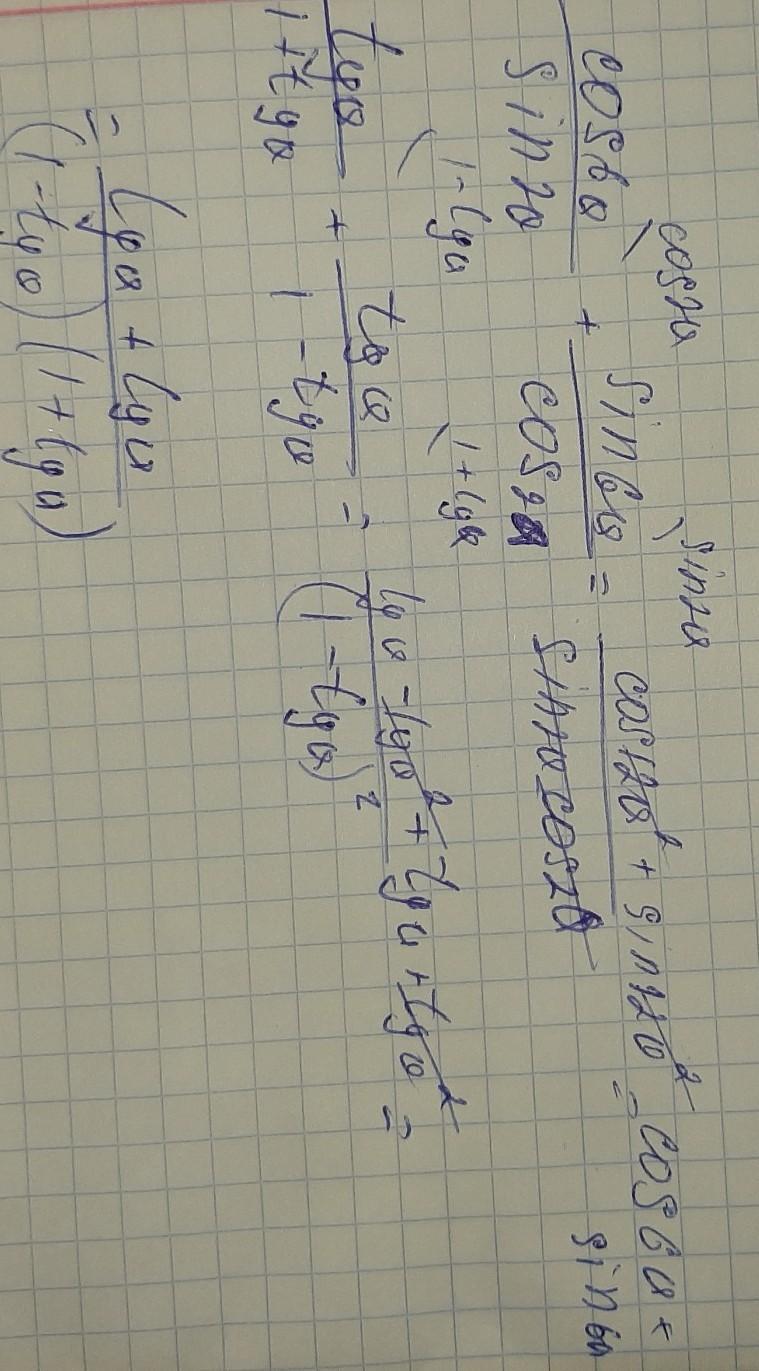 cos6α \cos2α + sin6α \sin2α = cos12α² + sin12α² = cos6α +
sin2α cos2α sin2α cos2α sin6α
\1-tgα \1+tgα
tgα + tgα = tgα - tgα² + tgα + tgα² =
1+tgα 1 - tgα (1 - tgα)²
= tgα + tgα
(1-tgα) (1+tgα)